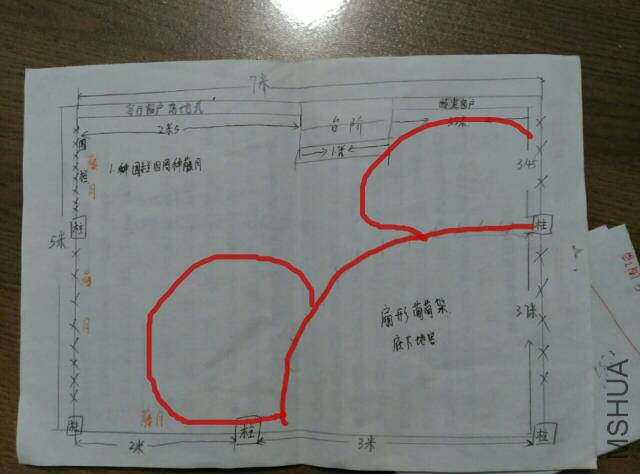 7米
客厅窗户落地式
台阶
卧室窗户
2米5
1米
围栏
藤月
1.种围栏四周种藤月
3.45
柱
柱
5米
藤月
扇形葡萄架
底下地台
3米
藤月
柱
柱
柱
2米
3米
IMSHUA